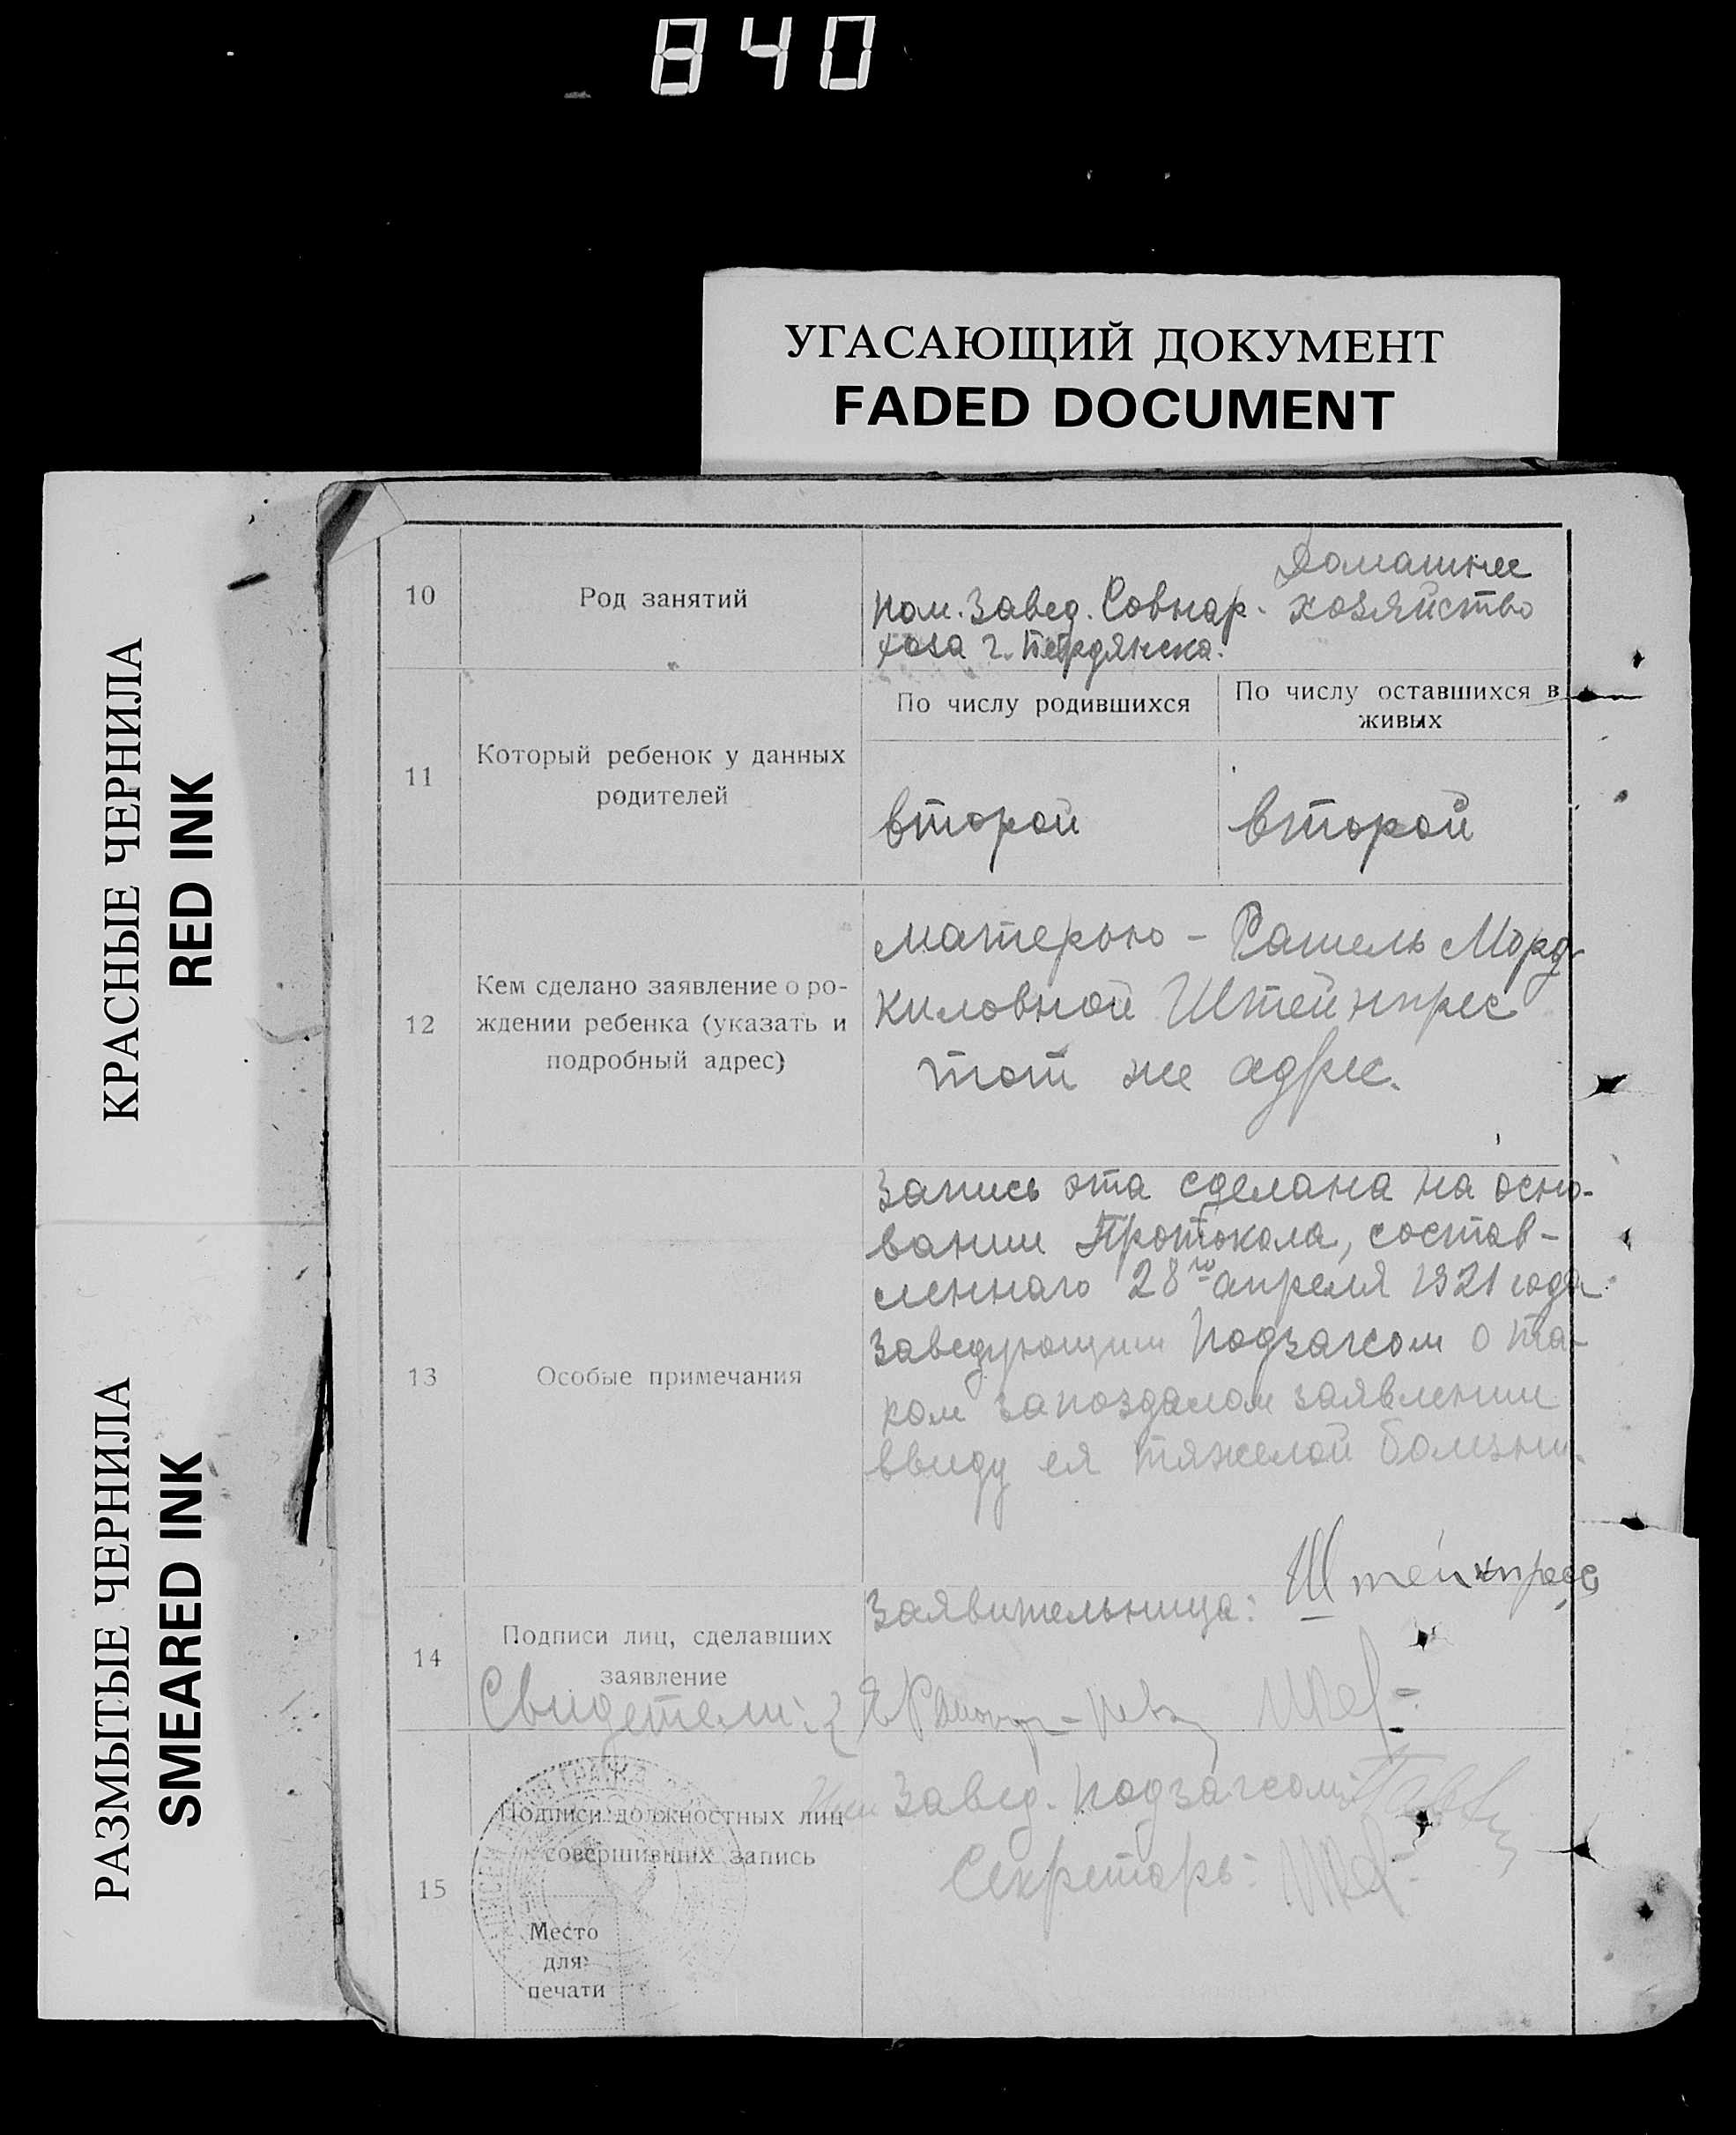 840
УГАСАЮЩИЙ ДОКУМЕНТ
FADED DOCUMENT
КРАСНЫЕ ЧЕРНИЛА
RED INK
РАЗМЫТЫЕ ЧЕРНИЛА
SMEARED INK
10
Род занятий
Пом. Завед. Совнар-
хоза г. Бердянска.
Домашнее
хозяйство
11
Который ребенок у данных
родителей
По числу родившихся
По числу оставшихся в
живых
второй
второй
12
Кем сделано заявление о ро-
ждении ребенка (указать и
подробный адрес)
матерью - Рашель Морд-
киловной Штейнпрес
тот же адрес.
13
Особые примечания
Запись эта сделана на осно-
вании Протокола, состав-
леннаго 28го апреля 1921 года
Заведующим Подзагсом о та-
ком запоздалом заявлении
ввиду ея тяжелой болезни.
14
Подписи лиц, сделавших
заявление
Заявительница: Штейнпресс
Свидетели:
15
Подписи должностных лиц
совершивших запись
Место
для
печати
Завед. Подзагсом:
Секретарь: